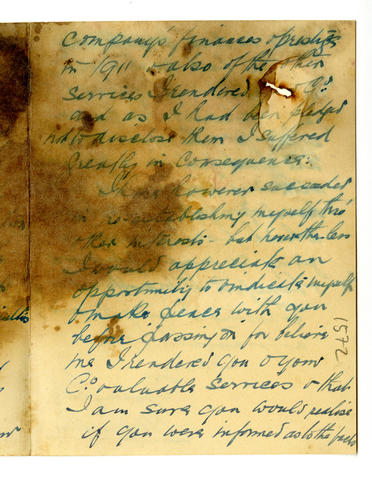 Company's finances & prestige
in 1911 & also of the other
services I rendered Co
and as I had been pledged
not to disclose them I suffered
greatly in consequence.
I have however succeeded
in re-establishing myself thro'
other interests - but nevertheless
I would appreciate an
opportunity to vindicate myself
& make peace with you
before passing on for believe
me I rendered you & your
Co valuable services & that
I am sure you would realise
if you were informed as to the facts
1572